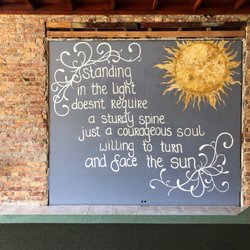 Standing
in the light
doesnt require
a sturdy spine
just a courageous soul
willing to turn
and face the sun